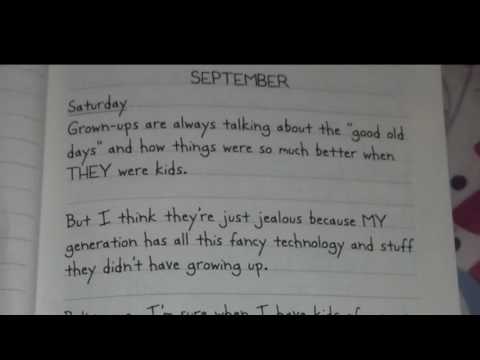 SEPTEMBER
Saturday
Grown-ups are always talking about the "good old
days" and how things were so much better when
THEY were kids.
But I think they're just jealous because MY
generation has all this fancy technology and stuff
they didn't have growing up.
I'm sure when I have kids of